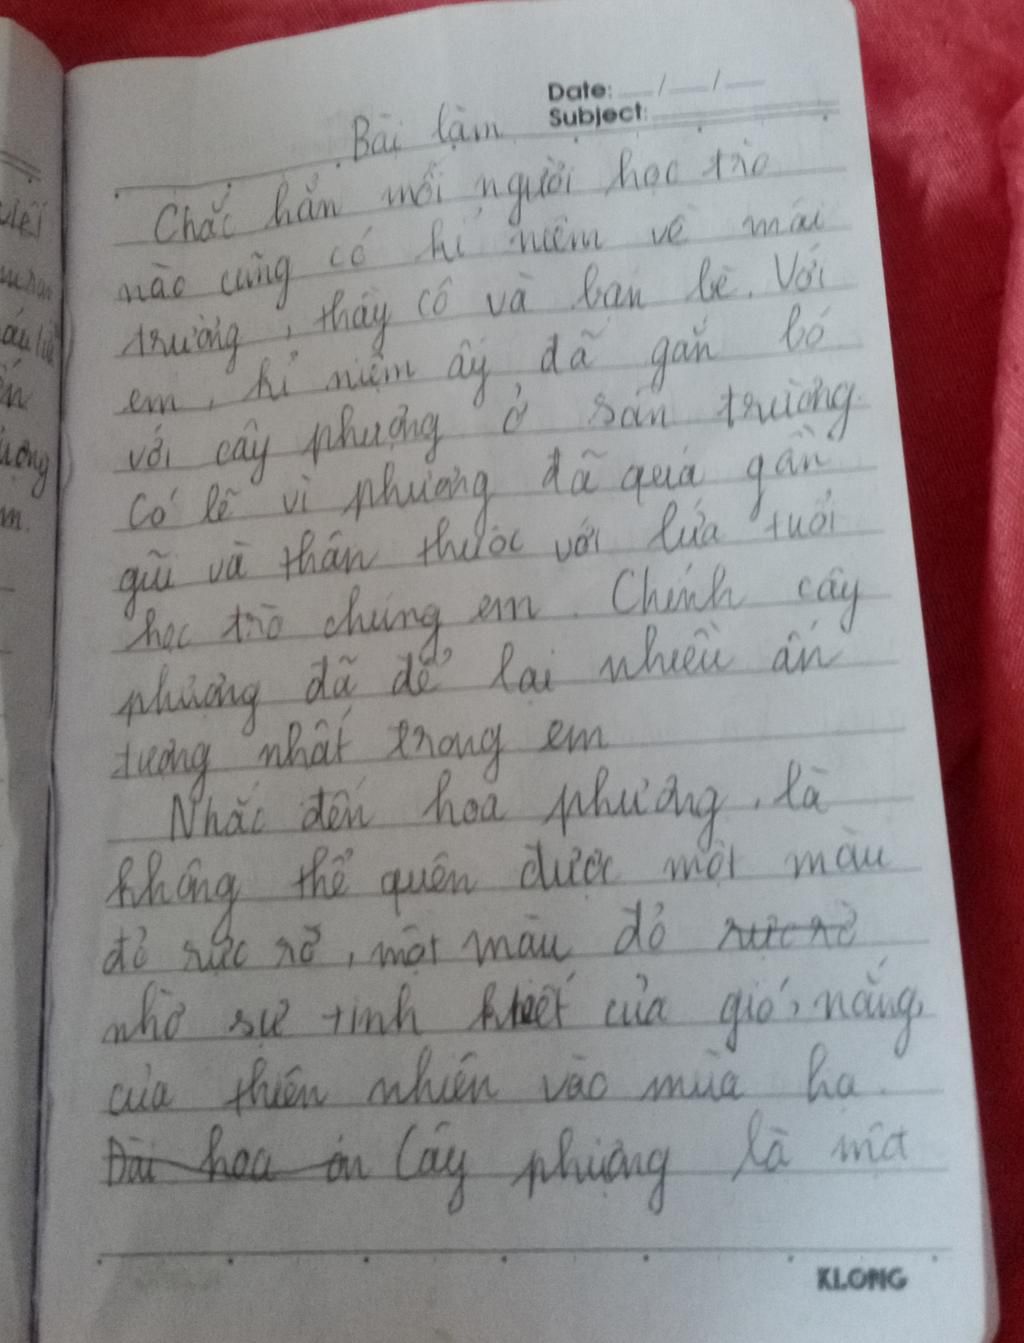 Date: __/__/__
Subject:
Bài làm
Chắc hẳn mỗi người học trò
nào cũng có kỉ niệm về mái
trường, thầy cô và bạn bè. Với
em, kỉ niệm ấy đã gắn bó
với cây phượng ở sân trường.
Có lẽ vì phượng đã quá gần
gũi và thân thuộc với lứa tuổi
học trò chúng em. Chính cây
phượng đã để lại nhiều ấn
tượng nhất trong em
Nhắc đến hoa phượng, là
không thể quên được một màu
đỏ rực rỡ, một màu đỏ rực rỡ
nhờ sự tinh khiết của gió, nắng,
của thiên nhiên vào mùa hạ.
Đài hoa ôn Cây phượng là một
KLONG